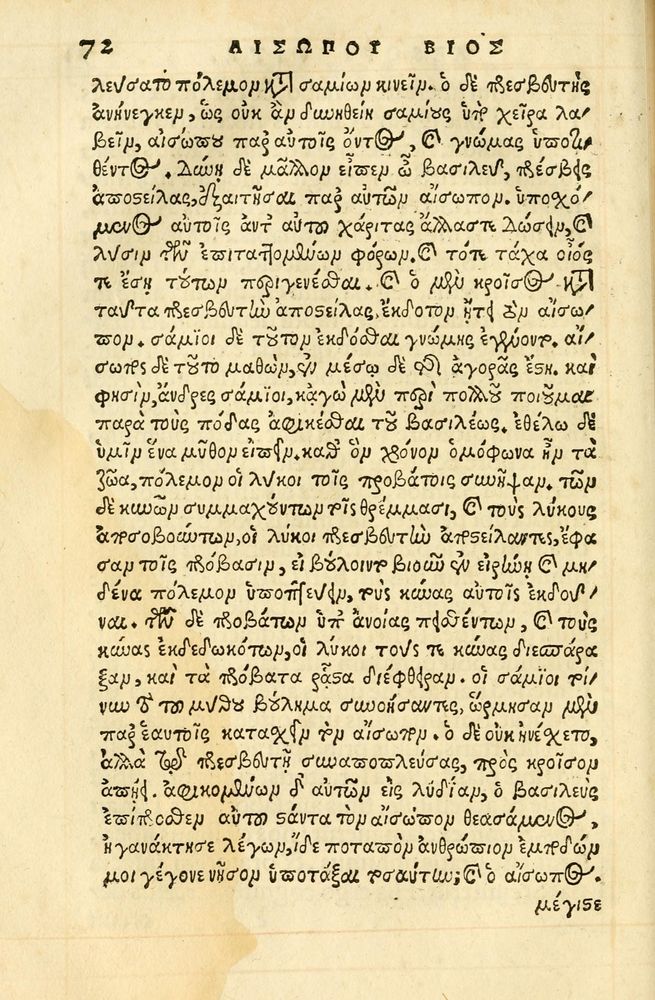 72 ΑΙΣΩΠΟΥ ΒΙΟΣ
λευσατο πόλεμον κατὰ σαμίων κινεῖν. ὁ δὲ πρεσβευτὴς
ἀνήνεγκεν, ὡς οὐκ ἂν δυνηθείη σαμίους ὑπὸ χεῖρα λα-
βεῖν, αἰσώπου παρ' αὐτοῖς ὄντος, καὶ γνώμας ὑποτι-
θέντος. δύνῃ δὲ μᾶλλον εἶπεν ὦ βασιλεῦ, πρέσβεις
ἀποστείλας, ἐξαιτῆσαι παρ' αὐτῶν αἴσωπον. ὑποσχό-
μενος αὐτοῖς ἀντ' αὐτοῦ χάριτας ἄλλας τε δώσειν, καὶ
λύσιν τῶν ἐπιταττομένων φόρων. καὶ τότε τάχα οἷός
τε ἔσῃ τούτων περιγενέσθαι. καὶ ὁ μὲν κροῖσος κατὰ
ταῦτα πρεσβευτὴν ἀποστείλας, ἔκδοτον ᾔτει τὸν αἴσω-
πον. σάμϊοι δὲ τοῦτον ἐκδόσθαι γνώμης ἐγένοντο. αἴ-
σωπος δὲ τοῦτο μαθὼν, ἐν μέσῳ δὲ τῆς ἀγορᾶς ἔστη. καί
φησιν, ἄνδρες σάμϊοι, κᾀγὼ μὲν περὶ πολλοῦ ποιοῦμαι
παρὰ τοὺς πόδας ἀφικέσθαι τοῦ βασιλέως. ἐθέλω δὲ
ὑμῖν ἕνα μῦθον εἰπεῖν. καθ' ὃν χρόνον ὁμόφωνα ἦν τὰ
ζῶα, πόλεμον οἱ λύκοι τοῖς προβάτοις συνῆψαν. τῶν
δὲ κυνῶν συμμαχούντων τοῖς θρέμμασι, καὶ τοὺς λύκους
ἀποσοβούντων, οἱ λύκοι πρεσβευτὴν ἀποστείλαντες, ἔφα
σαν τοῖς προβάσιν, εἰ βούλοιντο βιοῦν ἐν εἰρήνῃ καὶ μη-
δένα πόλεμον ὑποπτεύειν, τοὺς κύνας αὐτοῖς ἐκδοῦ-
ναι. τῶν δὲ προβάτων ὑπ' ἀνοίας πεισθέντων, καὶ τοὺς
κύνας ἐκδεδωκότων, οἱ λύκοι τούς τε κύνας διεσπάρα
ξαν, καὶ τὰ πρόβατα ῥᾷστα διέφθειραν. οἱ σάμϊοι τοί-
νυν τὸ τοῦ μύθου βούλημα συνοήσαντες, ὥρμησαν μὲν
παρ' ἑαυτοῖς κατασχεῖν τὸν αἴσωπον. ὁ δὲ οὐκ ἠνέχετο,
ἀλλὰ τῷ πρεσβευτῇ συναποπλεύσας, πρὸς κροῖσον
ἀπῄει. ἀφικομένων δ' αὐτῶν εἰς λύδϊαν, ὁ βασιλεὺς
ἐπίπροσθεν αὐτοῦ στάντα τὸν αἴσωπον θεασάμενος,
ἠγανάκτησε λέγων, ἴδε ποταπὸν ἀνθρώπιον ἐμποδών
μοι γέγονε νῆσον ὑποτάξαι τοσαύτην; καὶ ὁ αἴσωπος.
μέγιστε